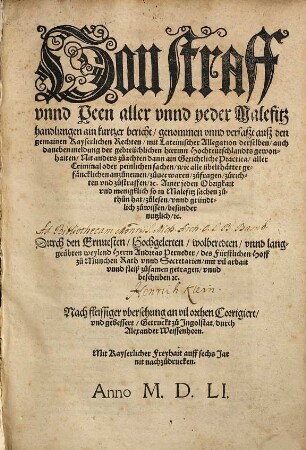 Von straff
vnnd Peen aller vnnd yeder Malefitz
handlungen ain kurtzer bericht / genommen vnnd verfaßt auß den
gemainen Kayserlichen Rechten / mit Lateinischer Allegation derselben / auch
daneben meldung der gebreüchlichen herrinn Hochteütschlandes gewon-
haiten / Nit anders züachten dann ain Gerichtliche Practica / aller
Criminal oder peinlichen sachen / wie alle übelthätter ge-
fäncklichen anzünemen / zuuerwaren / züfragen / züreich-
ten vnd züstraffen / ꝛc. Ainer jeden Oberkait
vnd mengklich so in Malefitz sachen zü-
thün hat / zülesen / vnnd gründt-
lich züwissen / besunder
nutzlich / ꝛc.
Durch den Ernuesten / Hochgelerten / wolberedten / vnnd lang-
geübten weylend Herrn Andreas Perneder / des Fürstlichen Hoff
zü Munchen Rath vnnd Secretarien / mit vil arbait
vnnd fleiß züsamen getragen / vnnd
beschriben ꝛc.
Nach fleissiger vbersehung an vil orthen Corrigiert /
vnd gebessert / Getruckt zü Ingolstat / durch
Alexander Weissenhorn.
Mit Kayserlicher Freyhait auff sechs Jar
nit nachzüdrucken.
Anno M. D. LI.